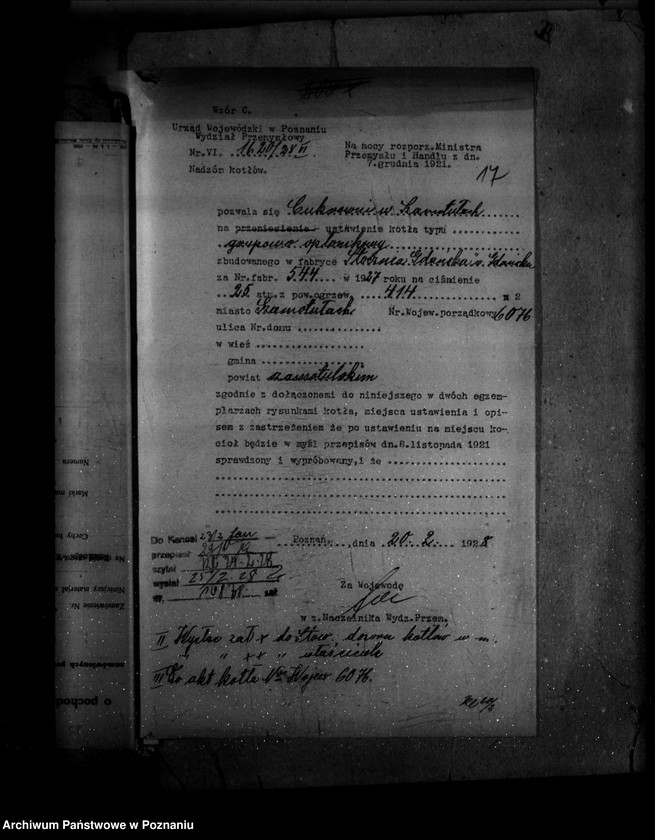 Wzór C.
Urząd Wojewódzki w Poznaniu
Wydział Przemysłowy
Nr.VI. 1620/28 II.
Nadzór kotłów.
Na mocy rozporz.Ministra
Przemysłu i Handlu z dn.
7.grudnia 1921.
17
pozwala się Cukrowni w Szamotułach
na przeniesienie- ustawienie kotła typu
zbudowanego w fabryce Stocznia Gdańska w Gdańsku
za Nr.fabr. 544 w 1927 roku na ciśnienie
25 atm.z pow.ogrzew. 414 m 2
miasto Szamotułach Nr.Wojew.porządkowy 6076
ulica Nr.domu
w wieś
gmina
powiat szamotulskim
zgodnie z dołączonemi do niniejszego w dwóch egzem-
plarzach rysunkami kotła, miejsca ustawienia i opi-
sem z zastrzeżeniem że po ustawieniu na miejscu ko-
cioł będzie w myśl przepisów dn.8.listopada 1921
sprawdzony i wypróbowany,i że
Do Kancel 23/2
przepisał
czytał
wysłał 25/2.28
Poznań, dnia 20. 2. 1928
Za Wojewodę
w z.Naczelnika Wydz.Przem.
II Wysłać zał. x do Stow. dozoru kotłów w m.
" " xx " właściciela
III Do akt kotła Nr. Wojew 6076.
Numera
Marki
Cechy
Zamówienie Nr.
o pochod
Archiwum Państwowe w Poznaniu